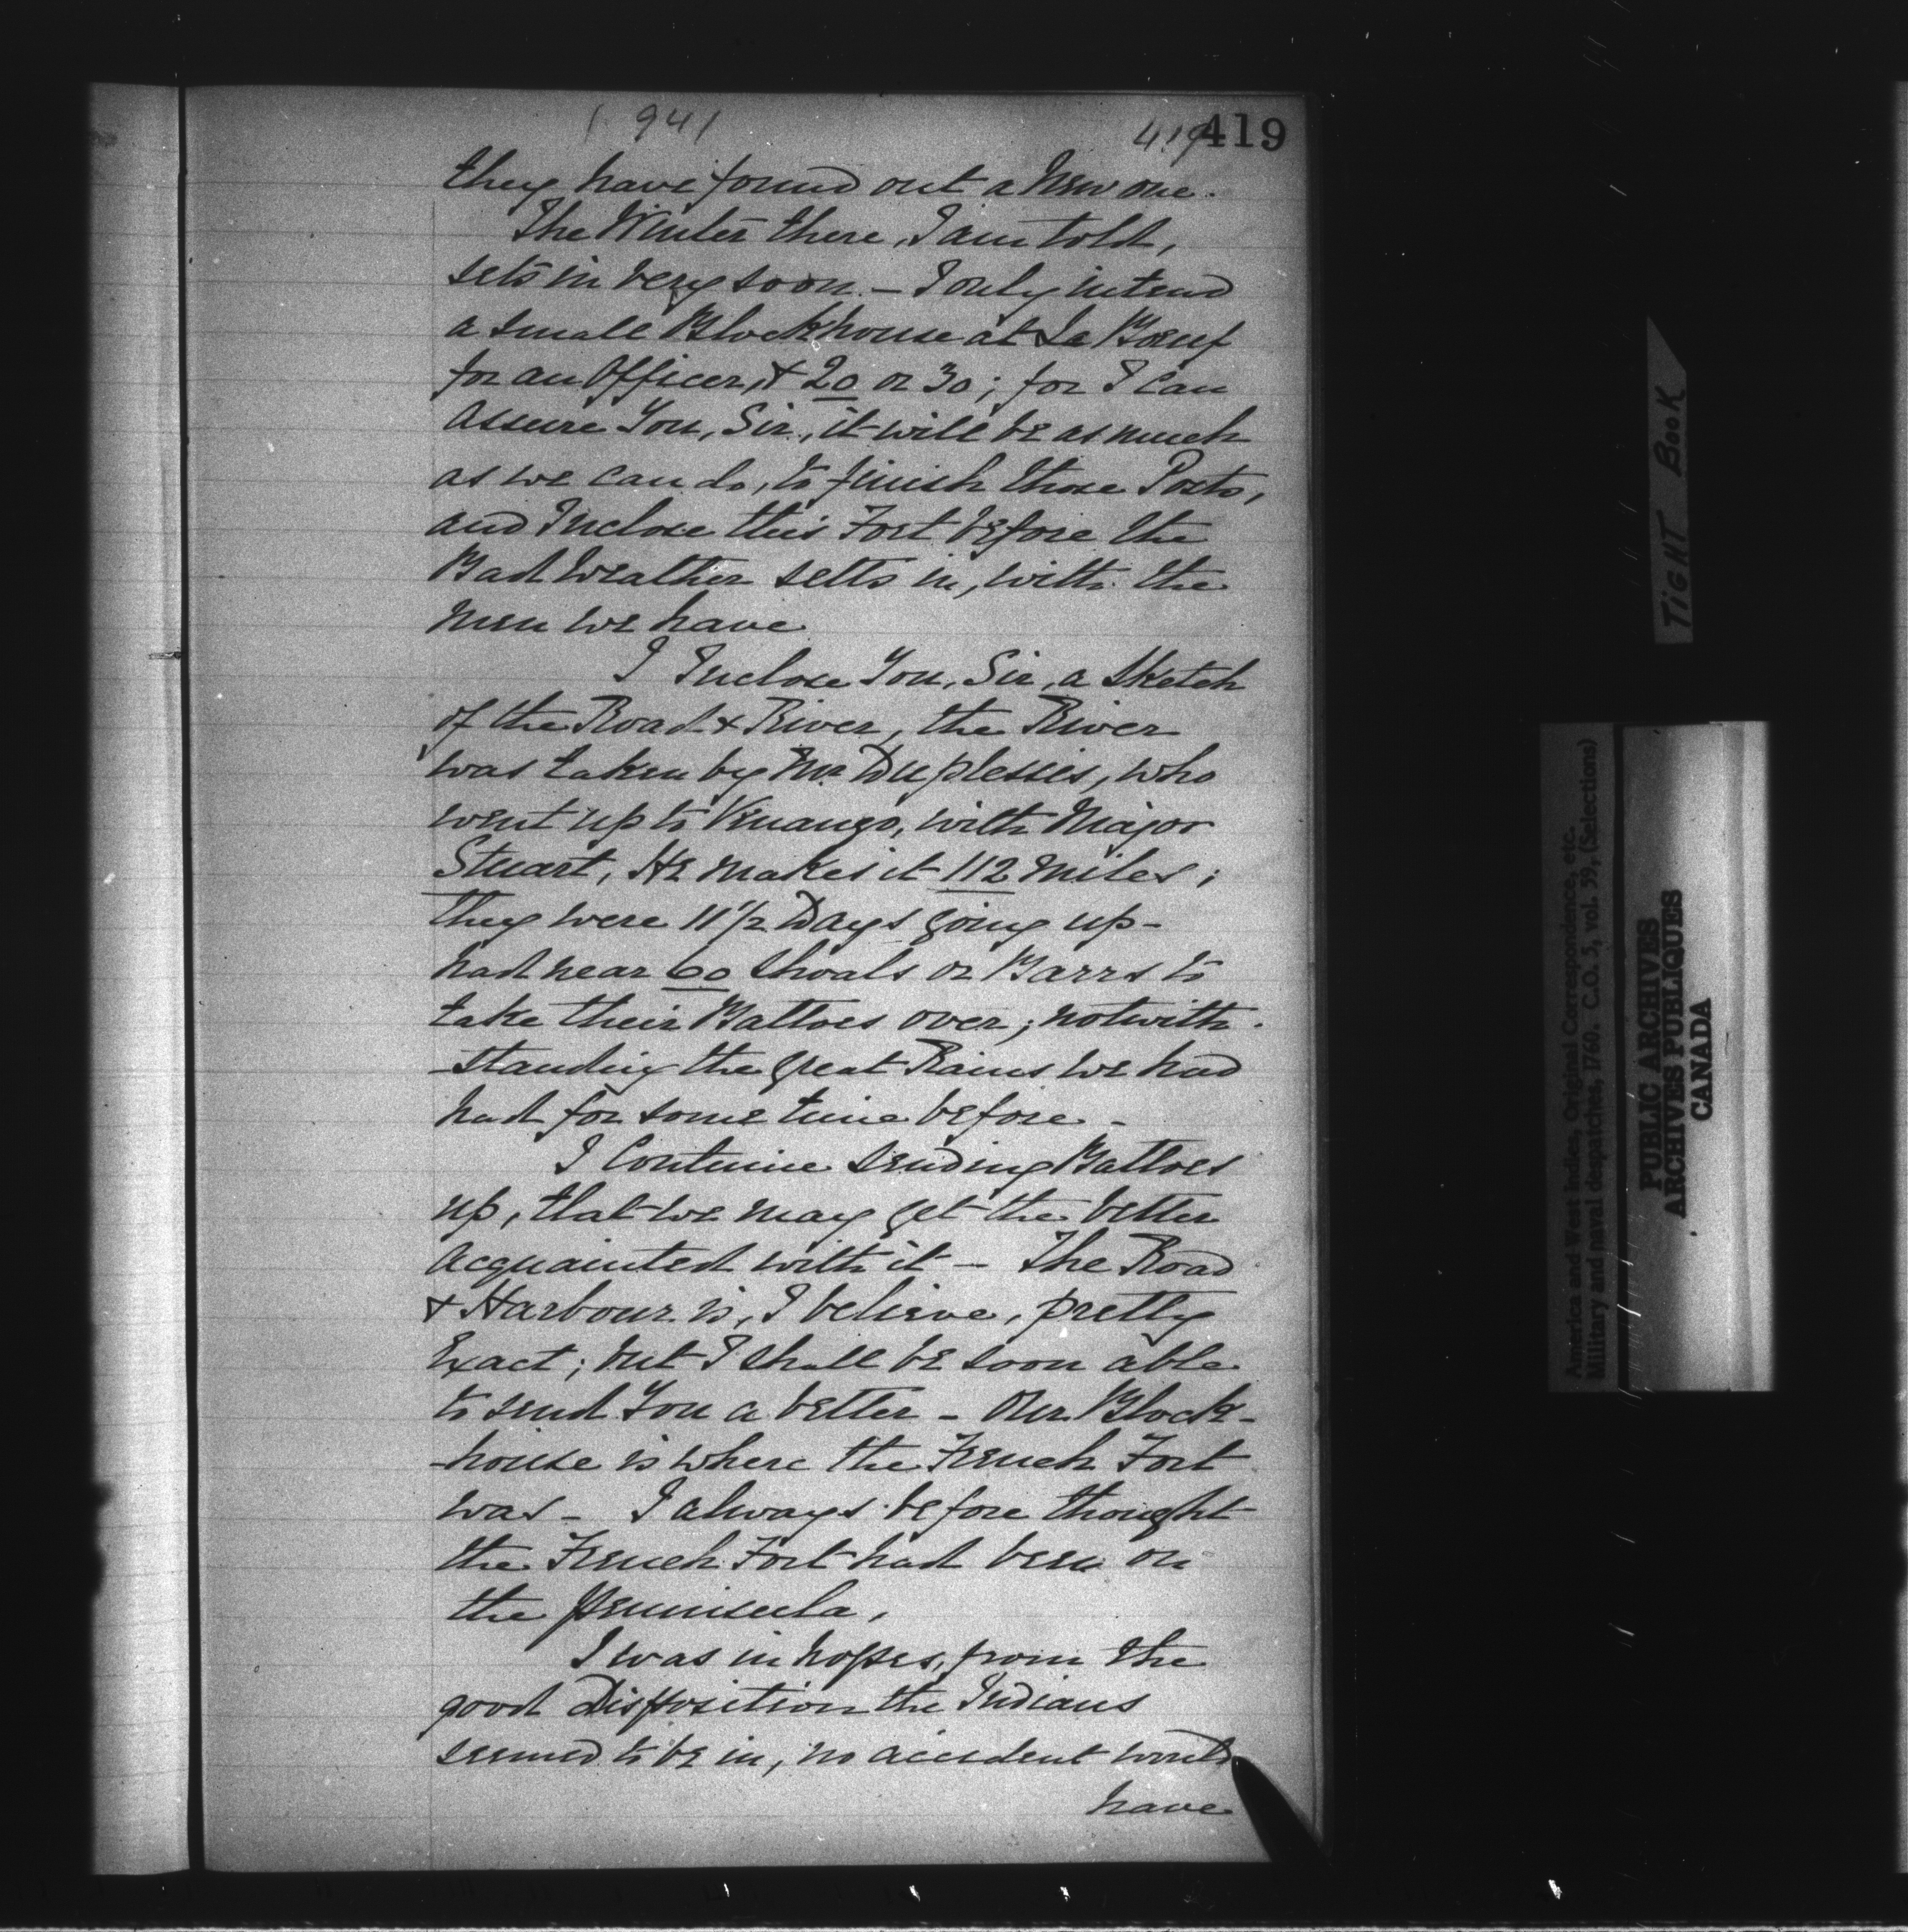 941
419 419
they have found out a New one.
The Winter there, I am told,
sets in very soon. - I only intend
a small Blockhouse at Le Bœuf
for an Officer, & 20 or 30; for I can
assure You, Sir, it will be as much
as we can do, to finish those Posts,
and Inclose this Fort before the
Bad Weather setts in, with the
Men we have
I Inclose You, Sir, a Sketch
of the Road & River, the River
was taken by Mr Duplessis, who
went up to Venango, with Major
Stuart, He makes it 112 Miles;
they were 11 1/2 Days going up -
had near 60 Shoals or Barrs to
take their Battoes over; notwith-
-standing the great Rains we had
had for some time before -
I Continue sending Battoes
up, that we may get the better
acquainted with it - The Road
& Harbour is, I believe, pretty
Exact; but I shall be soon able
to send You a better - Our Block-
-house is where the French Fort
was - I always before thought
the French Fort had been on
the Peninsula,
I was in hopes, from the
good Disposition the Indians
seemed to be in, no accident would
have
TIGHT BOOK
America and West Indies, Original Correspondence, etc.
Military and naval despatches, 1760. C.O. 5, vol. 59, (Selections)
PUBLIC ARCHIVES
ARCHIVES PUBLIQUES
CANADA